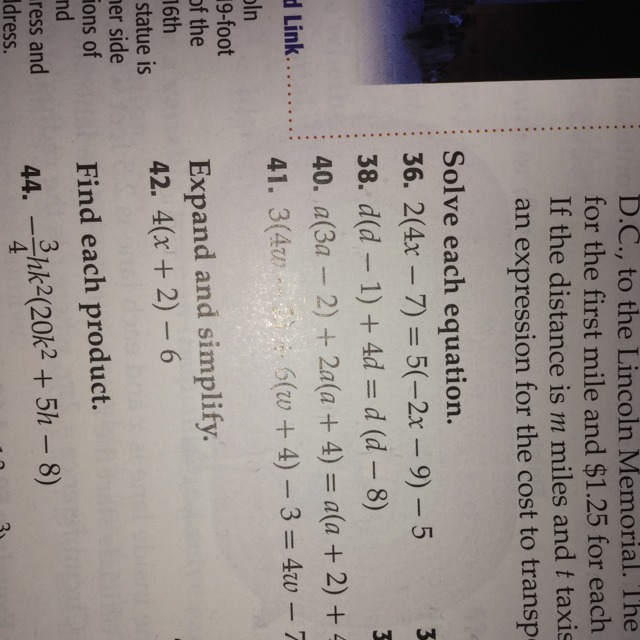 D.C., to the Lincoln Memorial. The
for the first mile and $1.25 for each
If the distance is m miles and t taxis
an expression for the cost to
Solve each equation.
36. 2(4x − 7) = 5(−2x − 9) − 5
38. d(d − 1) + 4d = d(d − 8)
40. a(3a − 2) + 2a(a + 4) = a(a + 2) +
41. 3(4w − + 6(w + 4) − 3 = 4w − 7
Expand and simplify.
42. 4(x + 2) − 6
Find each product.
44. −3/4hk²(20k² + 5h − 8)
d Link
oln
9-foot
of the
statue is
her side
ions of
nd
ress and
dress.